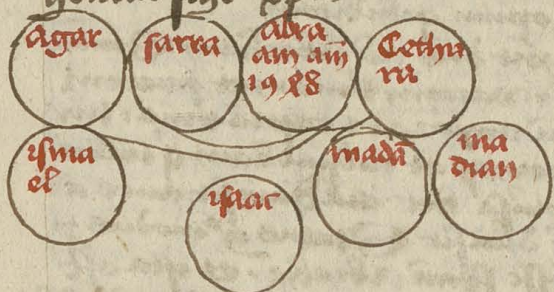 agar
sarra
abra
am am̄
19 
Cethu
ra
isma
el
isaac
madā
ma
dian